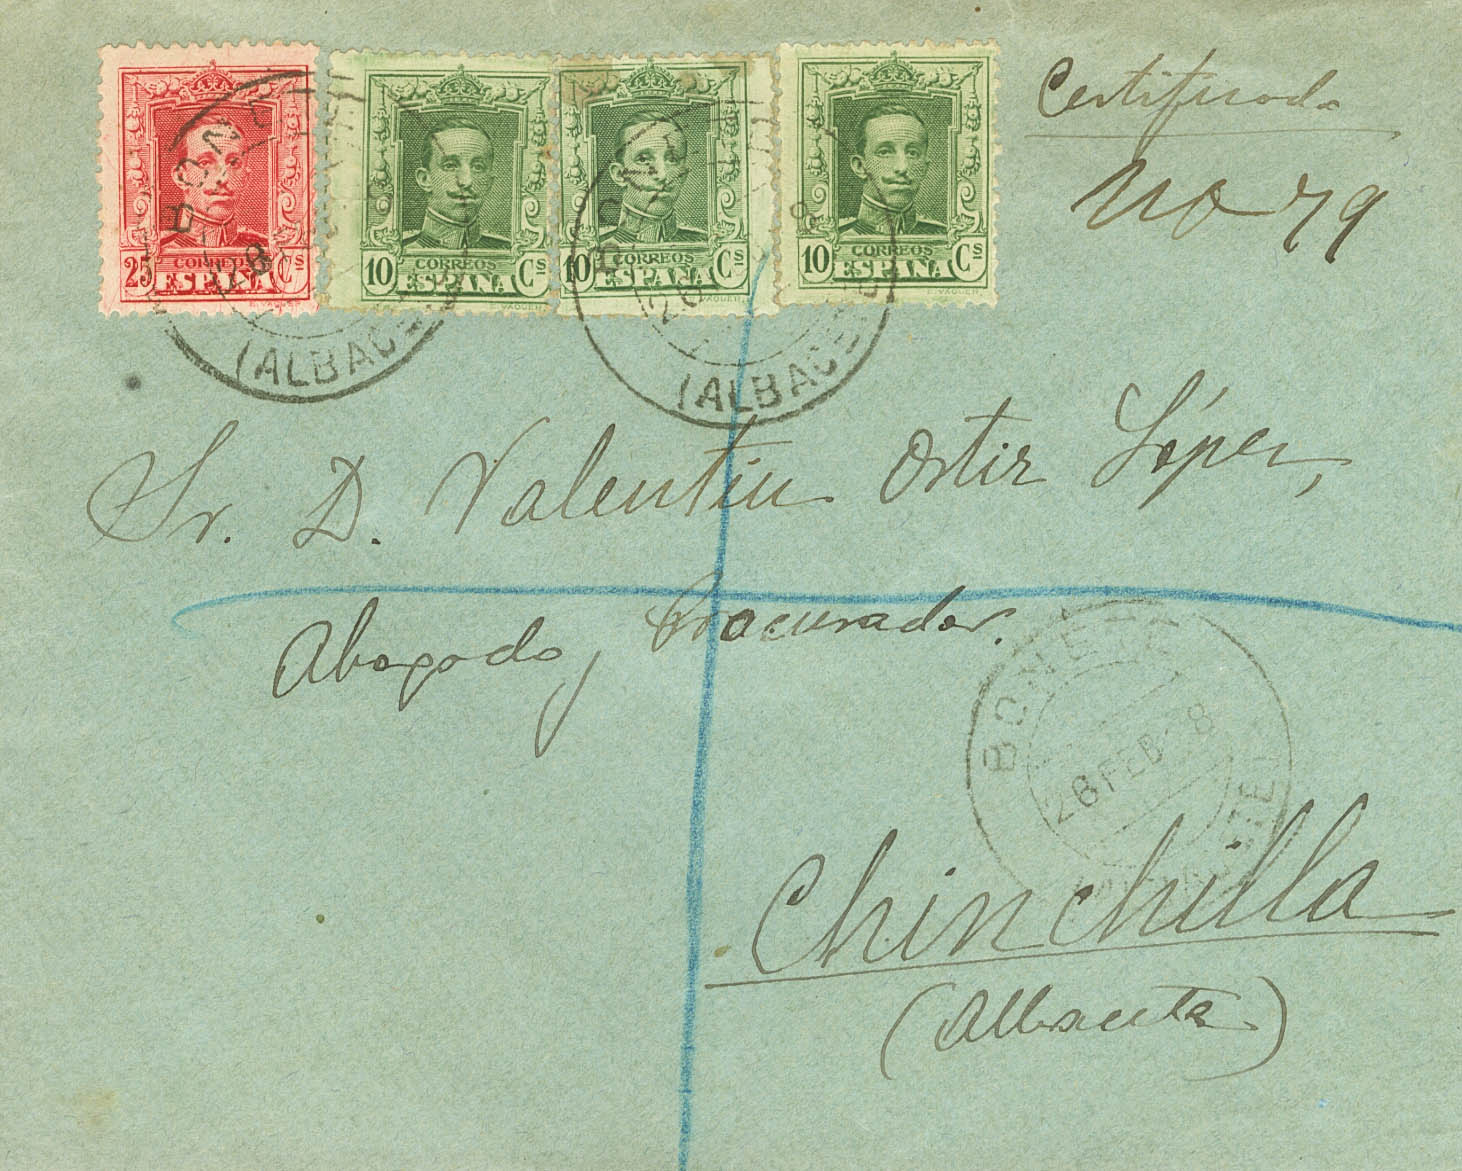 Certificado
No 79
25 CORREOS Cs
ESPAÑA
10 CORREOS Cs
ESPAÑA
E. VAQUER
10 CORREOS Cs
ESPAÑA
VAQUER
10 CORREOS Cs
ESPAÑA
VAQUER
BON
28
(ALBACE
(ALBACE
Sr. D. Valentin Ortiz López,
Abogado, Procurador.
BONETE
26 FEB 28
Chinchilla
(Albacete)